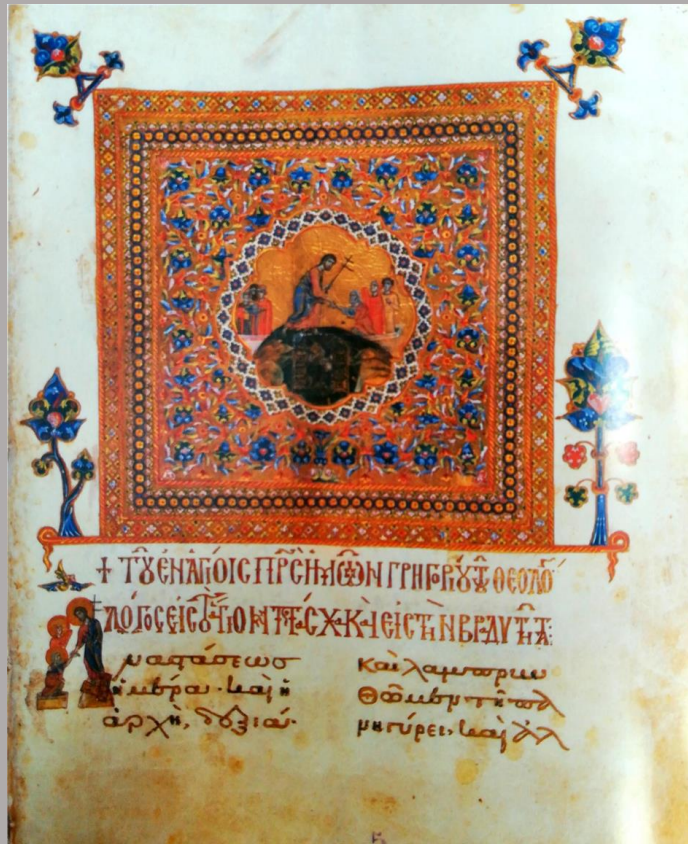 + ΤȢ ἘΝ ἉΓΙΟΙϹ ΠΡ̅Ϲ ἩΜΩ͂Ν ΓΡΗΓΟΡΙȢ ΤȢ͂ ΘΕΟΛΟ
ΛΟΓΟϹ ΕἸϹ ΤῸ ἍΓΙΟΝ ΠΑϹΧΑ ΚΑῚ ΕἸϹ ΤῊΝ ΒΡΑΔΥΤΗ͂ΤΑ:
Ἀναστάσεωσ
ἡμέρα· καὶ ἡ
ἀρχὴ, δεξιά·
καὶ λαμπρυν
θῶμεν τῆ πα
νηγύρει, καὶ ἀλ